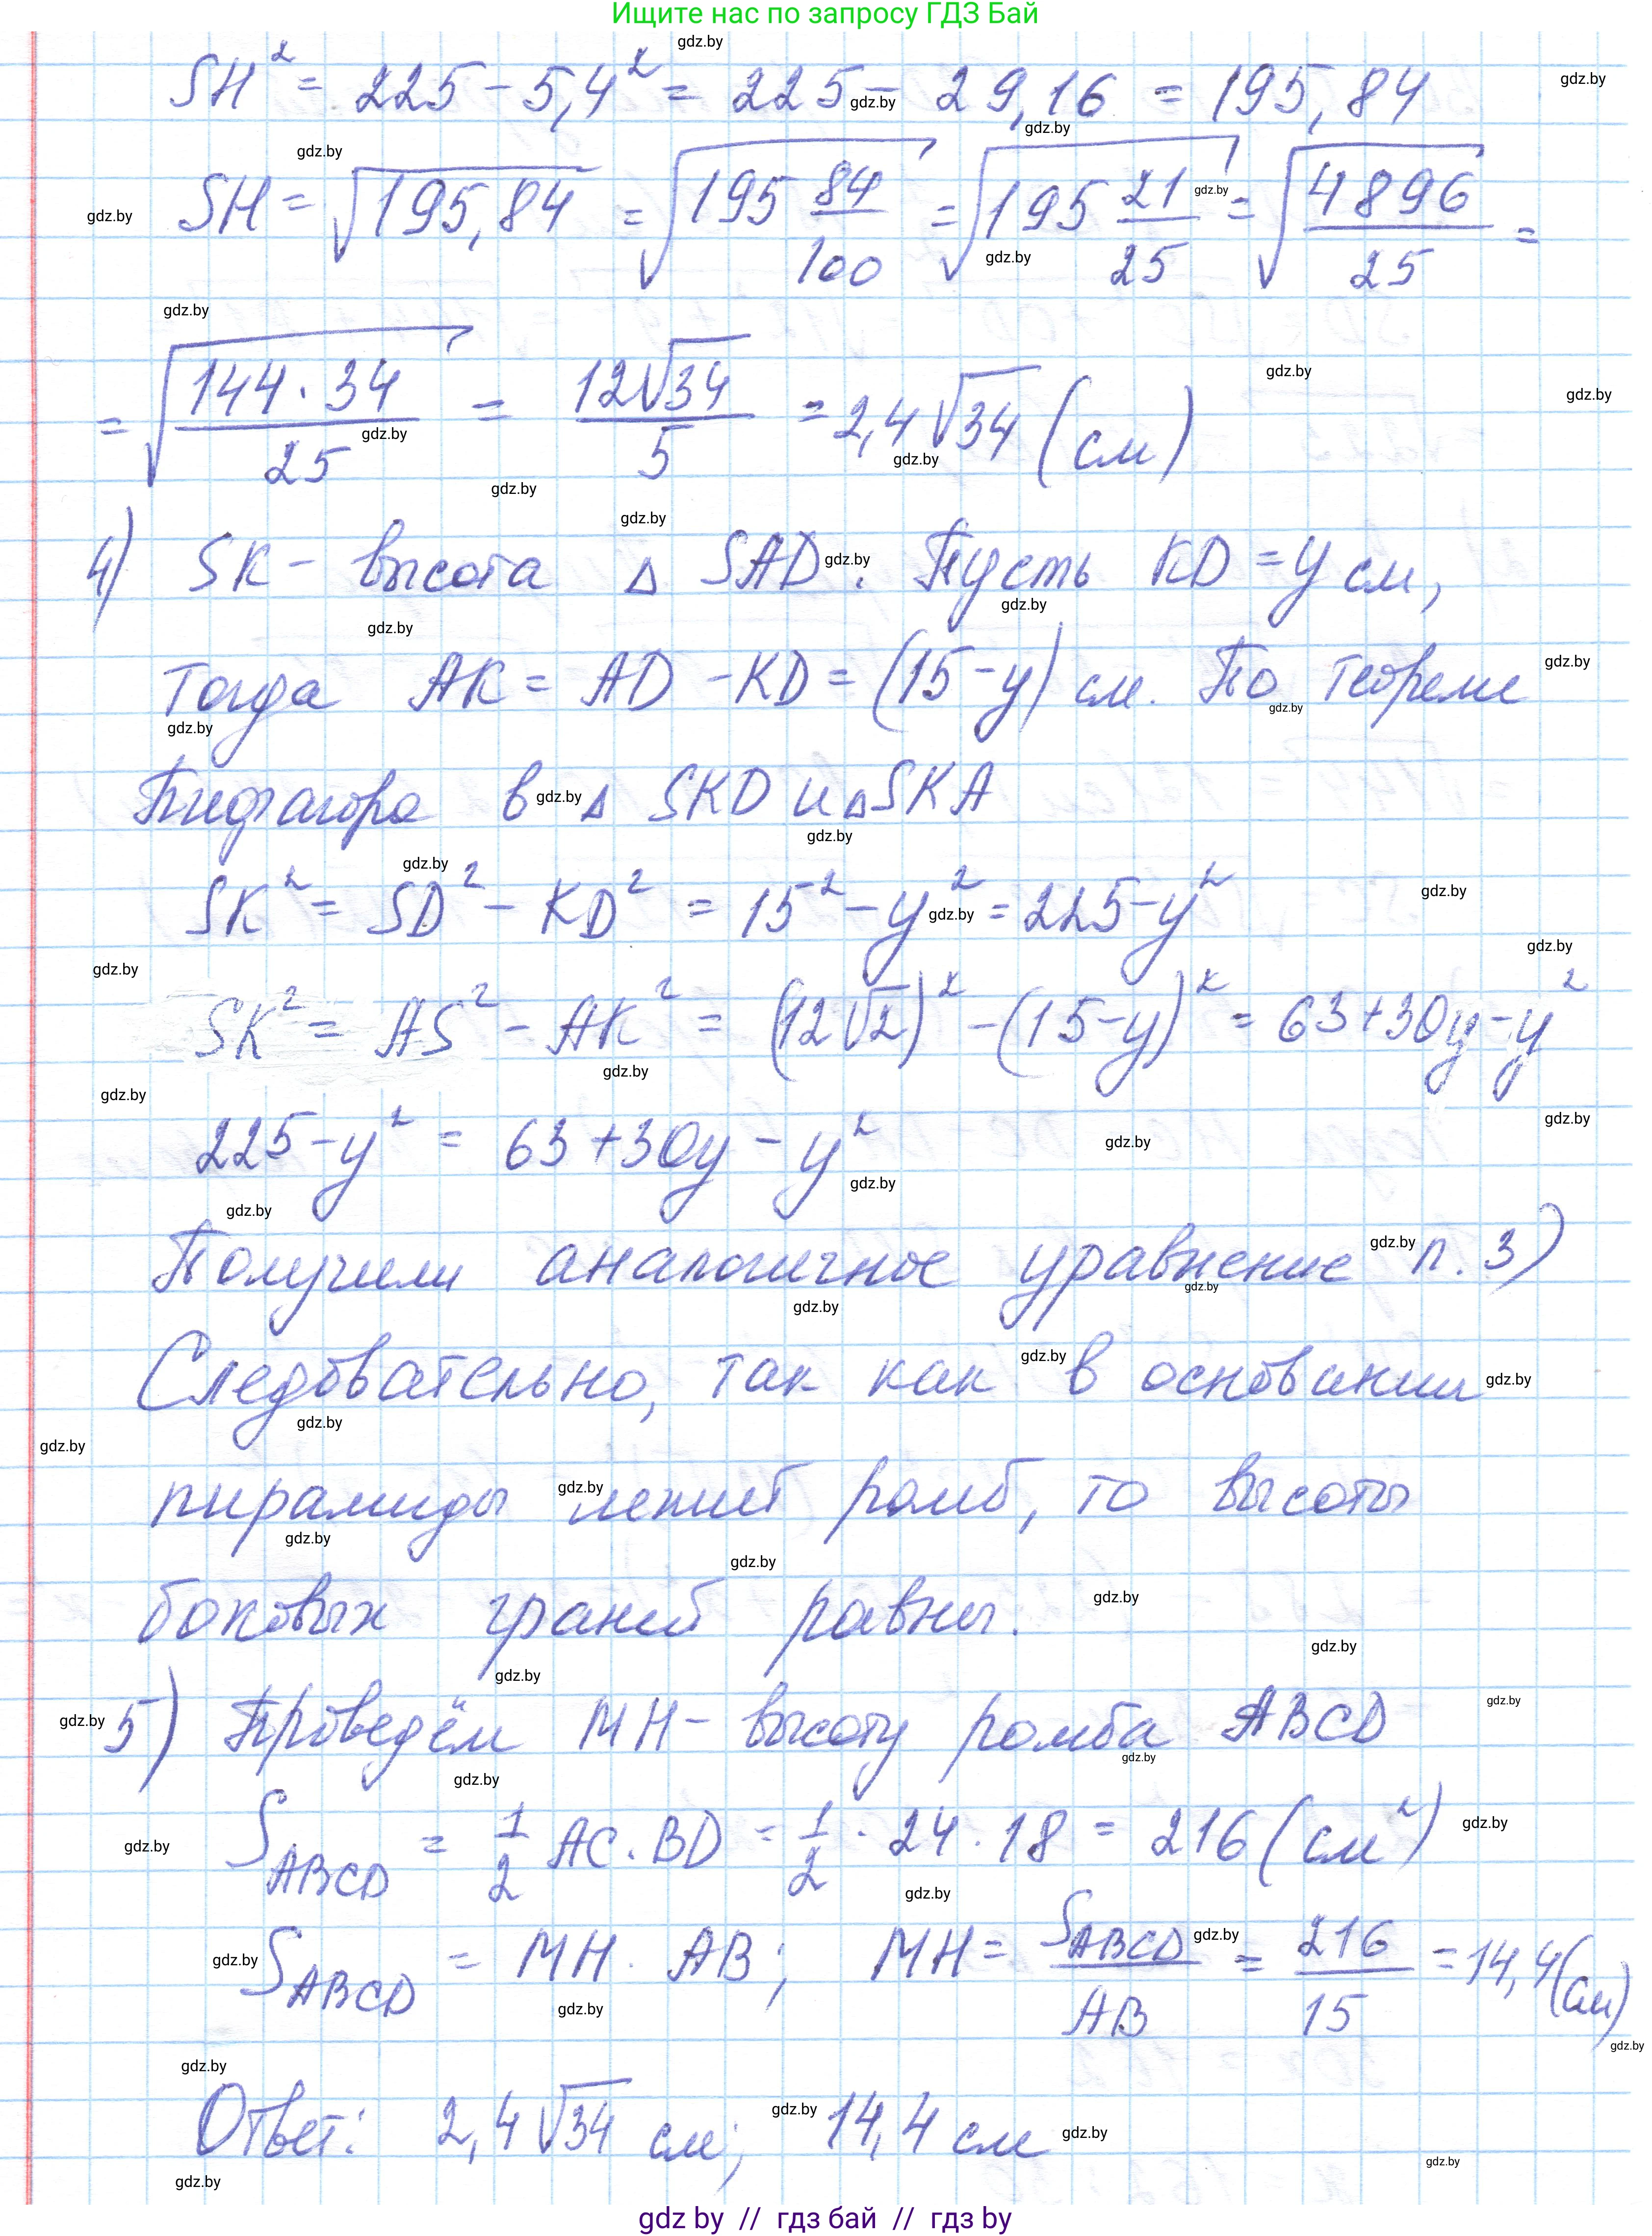 Ищите нас по запросу ГДЗ Бай
SH² = 225 - 5,4² = 225 - 29,16 = 195,84
SH = √195,84 = √(195 84/100) = √(195 21/25) = √(4896/25) =
= √(144 · 34/25) = 12√34/5 = 2,4√34 (см)
4) SK - высота Δ SAD. Пусть KD = y см,
тогда AK = AD - KD = (15 - y) см. По теореме
Пифагора в Δ SKD и Δ SKA
SK² = SD² - KD² = 15² - y² = 225 - y²
SK² = AS² - AK² = (12√2)² - (15 - y)² = 63 + 30y - y²
225 - y² = 63 + 30y - y²
Получили аналогичное уравнение п. 3)
Следовательно, так как в основании
пирамиды лежит ромб, то высоты
боковых граней равны.
5) Проведём MH - высоту ромба ABCD
S_ABCD = 1/2 AC · BD = 1/2 · 24 · 18 = 216 (см²)
S_ABCD = MH · AB; MH = S_ABCD/AB = 216/15 = 14,4 (см)
Ответ: 2,4√34 см; 14,4 см
gdz by // гдз бай // гдз by